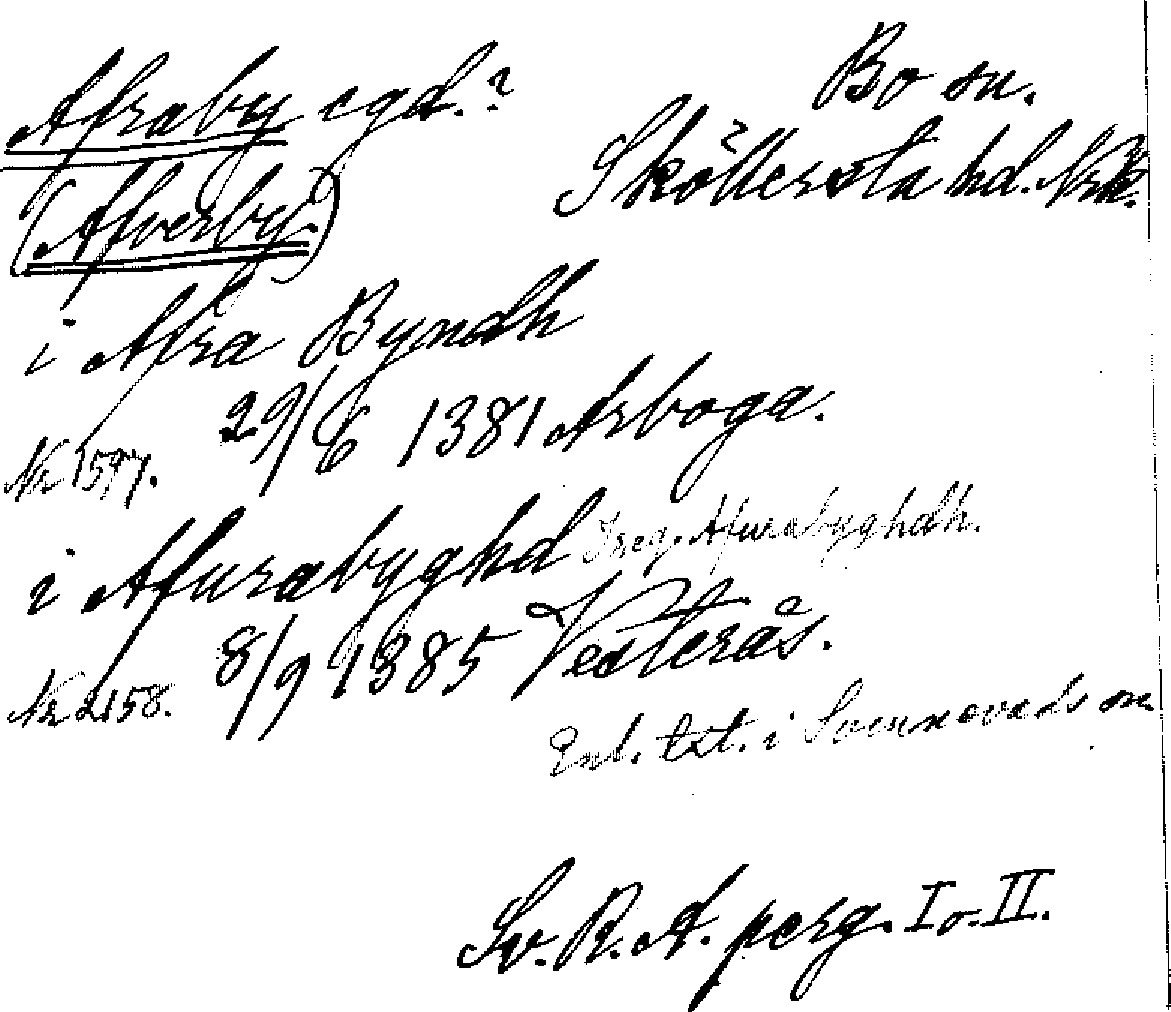 Afraby egd.?
Bo sn.
Sköllersta hd. Nrk.
(Afverby.)
i Afra Byndh
29/6 1381 Arboga.
Nr 1597.
i Afurabyghd I reg. Afurabyghdh.
8/9 1385 Vesterås.
Nr 2158.
Enl. txt. i Svennevads sn
Sv. R. A. perg. I o. II.